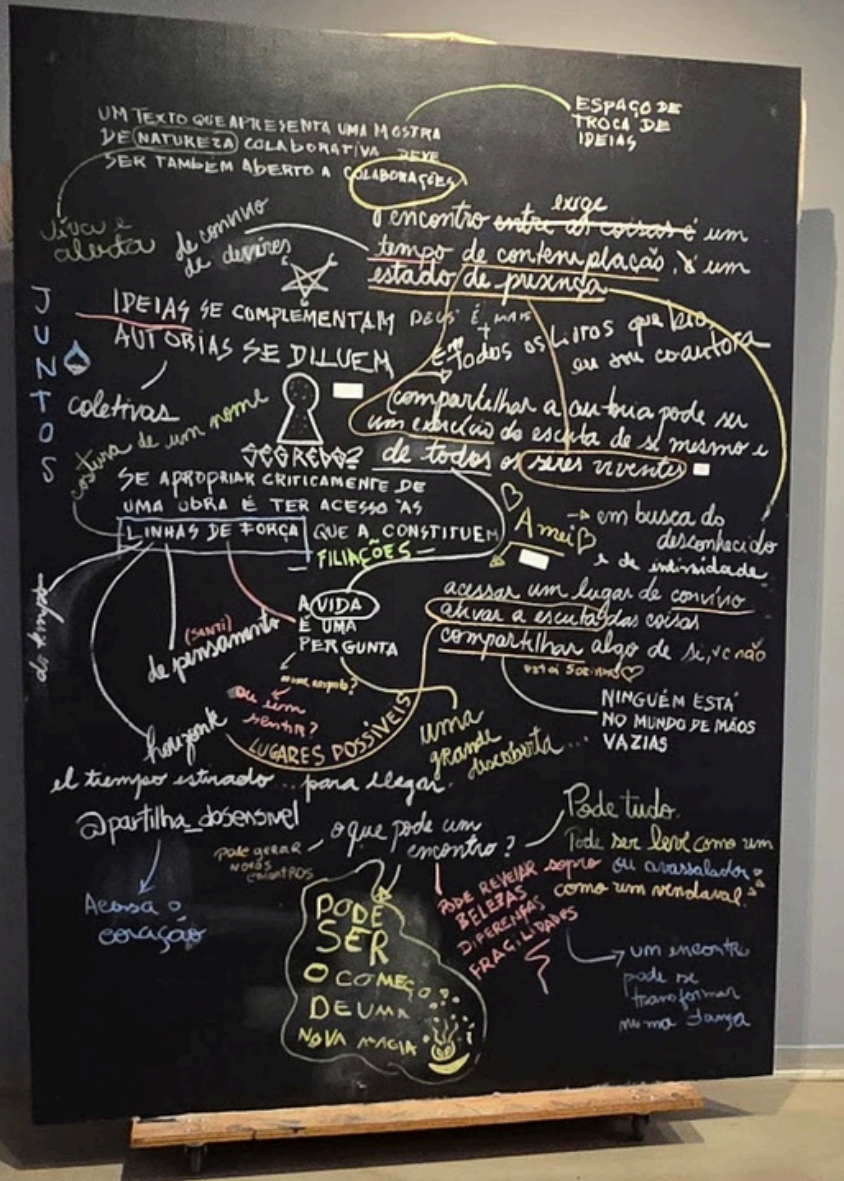 UM TEXTO QUE APRESENTA UMA MOSTRA
DE NATUREZA COLABORATIVA DEVE
SER TAMBÉM ABERTO A COLABORAÇÕES
ESPAÇO DE
TROCA DE
IDEIAS
viva e
alerta
de convívio
de devires
exige
o encontro entre as coisas é um
tempo de contemplação, é um
estado de presença
JUNTOS
IDEIAS SE COMPLEMENTAM
AUTORIAS SE DILUEM
DEUS É MAIS
+
Todos os livros que leio,
eu sou coautora
coletivas
costura de um nome
SEGREDO?
compartilhar a autoria pode ser
um exercício de escuta de si mesmo e
de todos os seres viventes
SE APROPRIAR CRITICAMENTE DE
UMA OBRA É TER ACESSO ÀS
LINHAS DE FORÇA QUE A CONSTITUEM
FILIAÇÕES
Amei
em busca do
desconhecido
e de intimidade
do tempo
(SANTI)
de pensamento
A VIDA
É UMA
PERGUNTA
ou um
sentir?
acessar um lugar de convívio
ativar a escuta das coisas
compartilhar algo de si, vc não
está sozinho
NINGUÉM ESTÁ
NO MUNDO DE MÃOS
VAZIAS
horizonte
LUGARES POSSÍVEIS
uma
grande
descoberta...
el tiempo estirado... para llegar.
@partilha_dosensivel
Acessa o
coração
pode gerar
novos
encontros
o que pode um
encontro?
Pode tudo.
Pode ser leve como um
sopro ou avassalador
como um vendaval.
PODE REVELAR
BELEZAS
DIFERENÇAS
FRAGILIDADES
PODE
SER
O COMEÇO
DE UMA
NOVA MAGIA
um encontro
pode se
transformar
numa dança